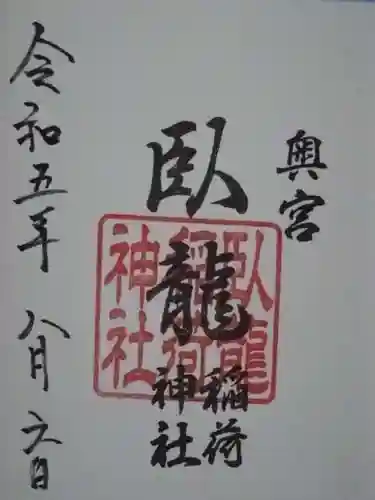 奥宮
臥龍
稲荷
神社
令和五年 八月六日
臥龍
稲荷
神社